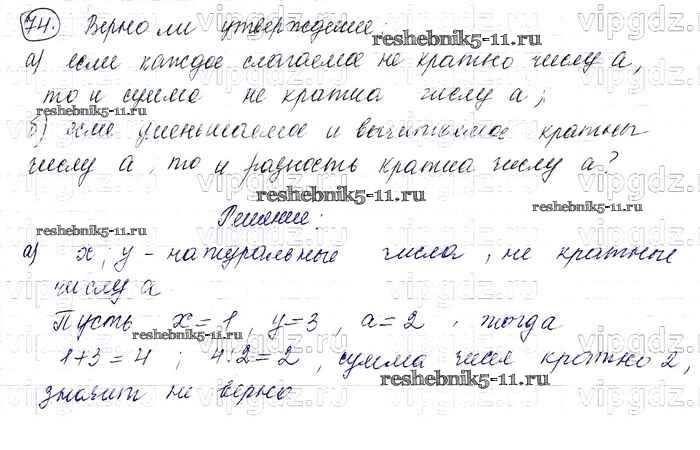 74. Верно ли утверждение:
reshebnik5-11.ru
а) если каждое слагаемое не кратно числу а,
то и сумма не кратна числу а;
reshebnik5-11.ru
б) если уменьшаемое и вычитаемое кратны
числу а, то и разность кратна числу а?
reshebnik5-11.ru
reshebnik5-11.ru
Решение:
reshebnik5-11.ru
а) x; y - натуральные числа, не кратные
числу а.
Пусть x=1, y=3, a=2, тогда
reshebnik5-11.ru
1+3=4; 4:2=2, сумма чисел кратно 2,
reshebnik5-11.ru
значит не верно
vipgdz.ru